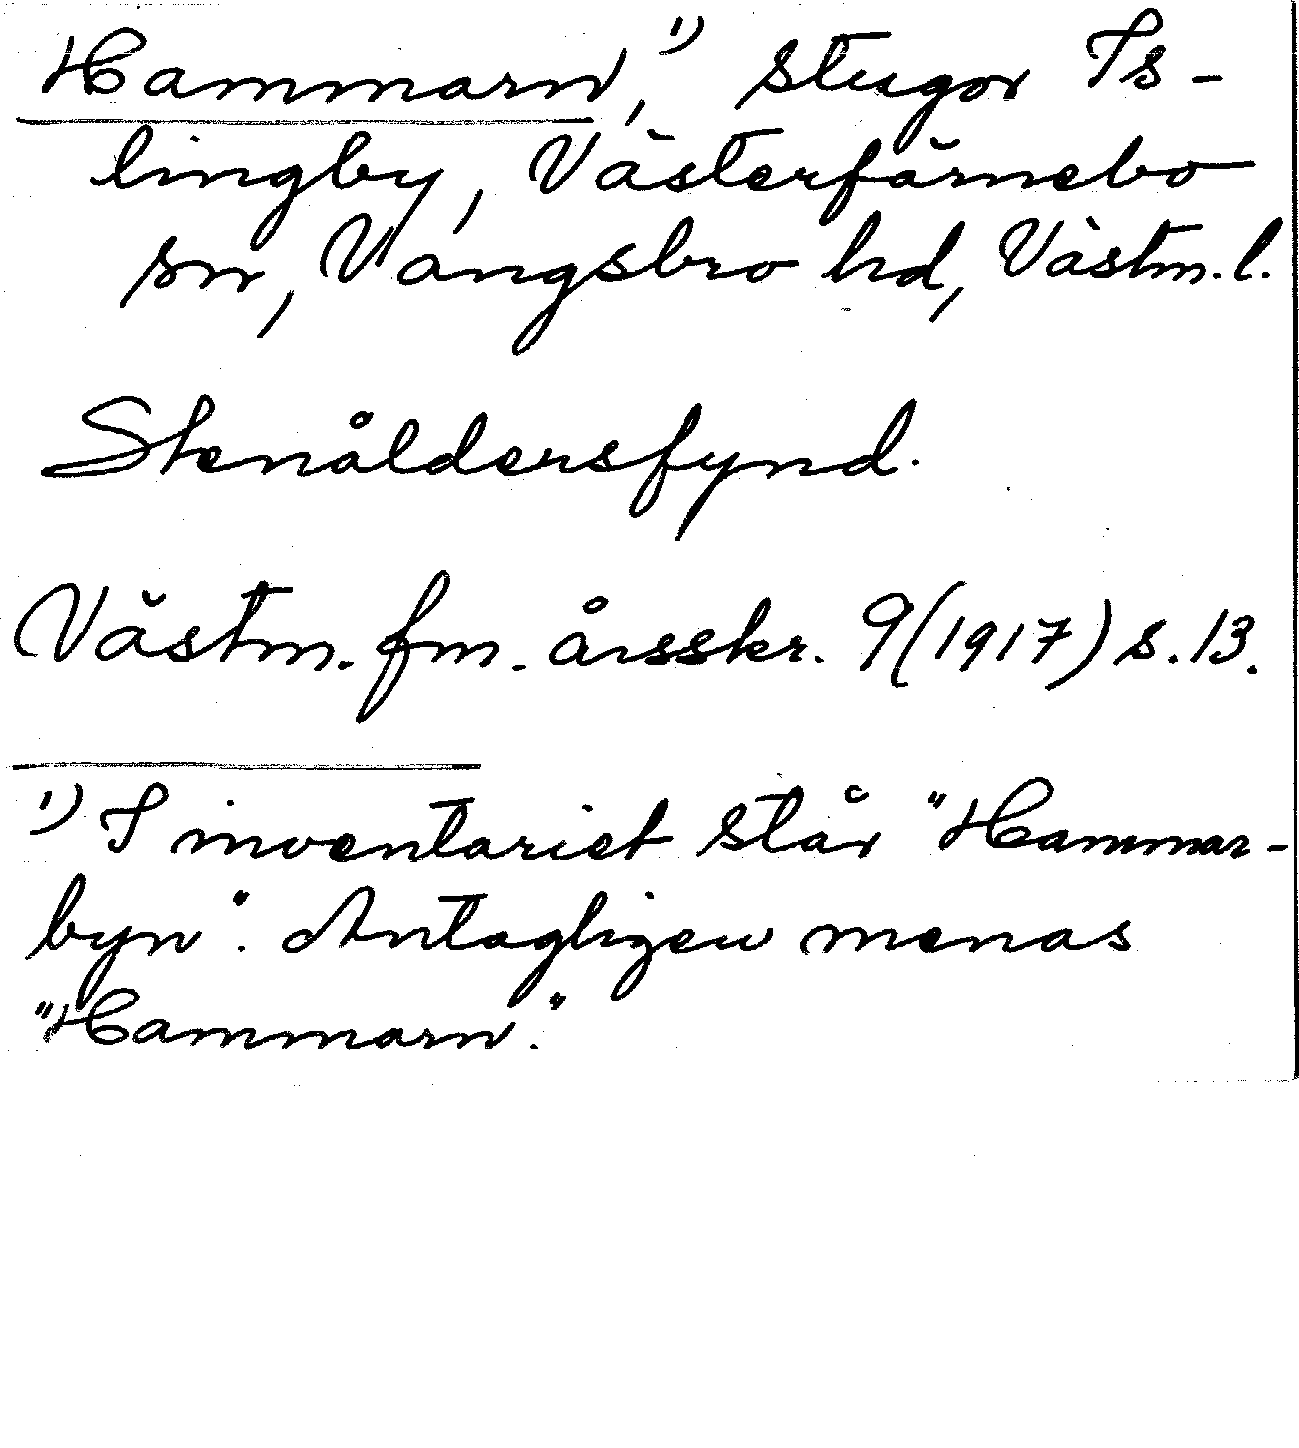 Hammarn,¹⁾ stugor Is-
lingby, Västerfärnebo
sn, Vangsbro hd, Västm. l.
Stenåldersfynd.
Västm. fm. årsskr. 9(1917) s. 13.
¹⁾ I inventariet står "Hammar-
byn". Antagligen menas
"Hammarn".